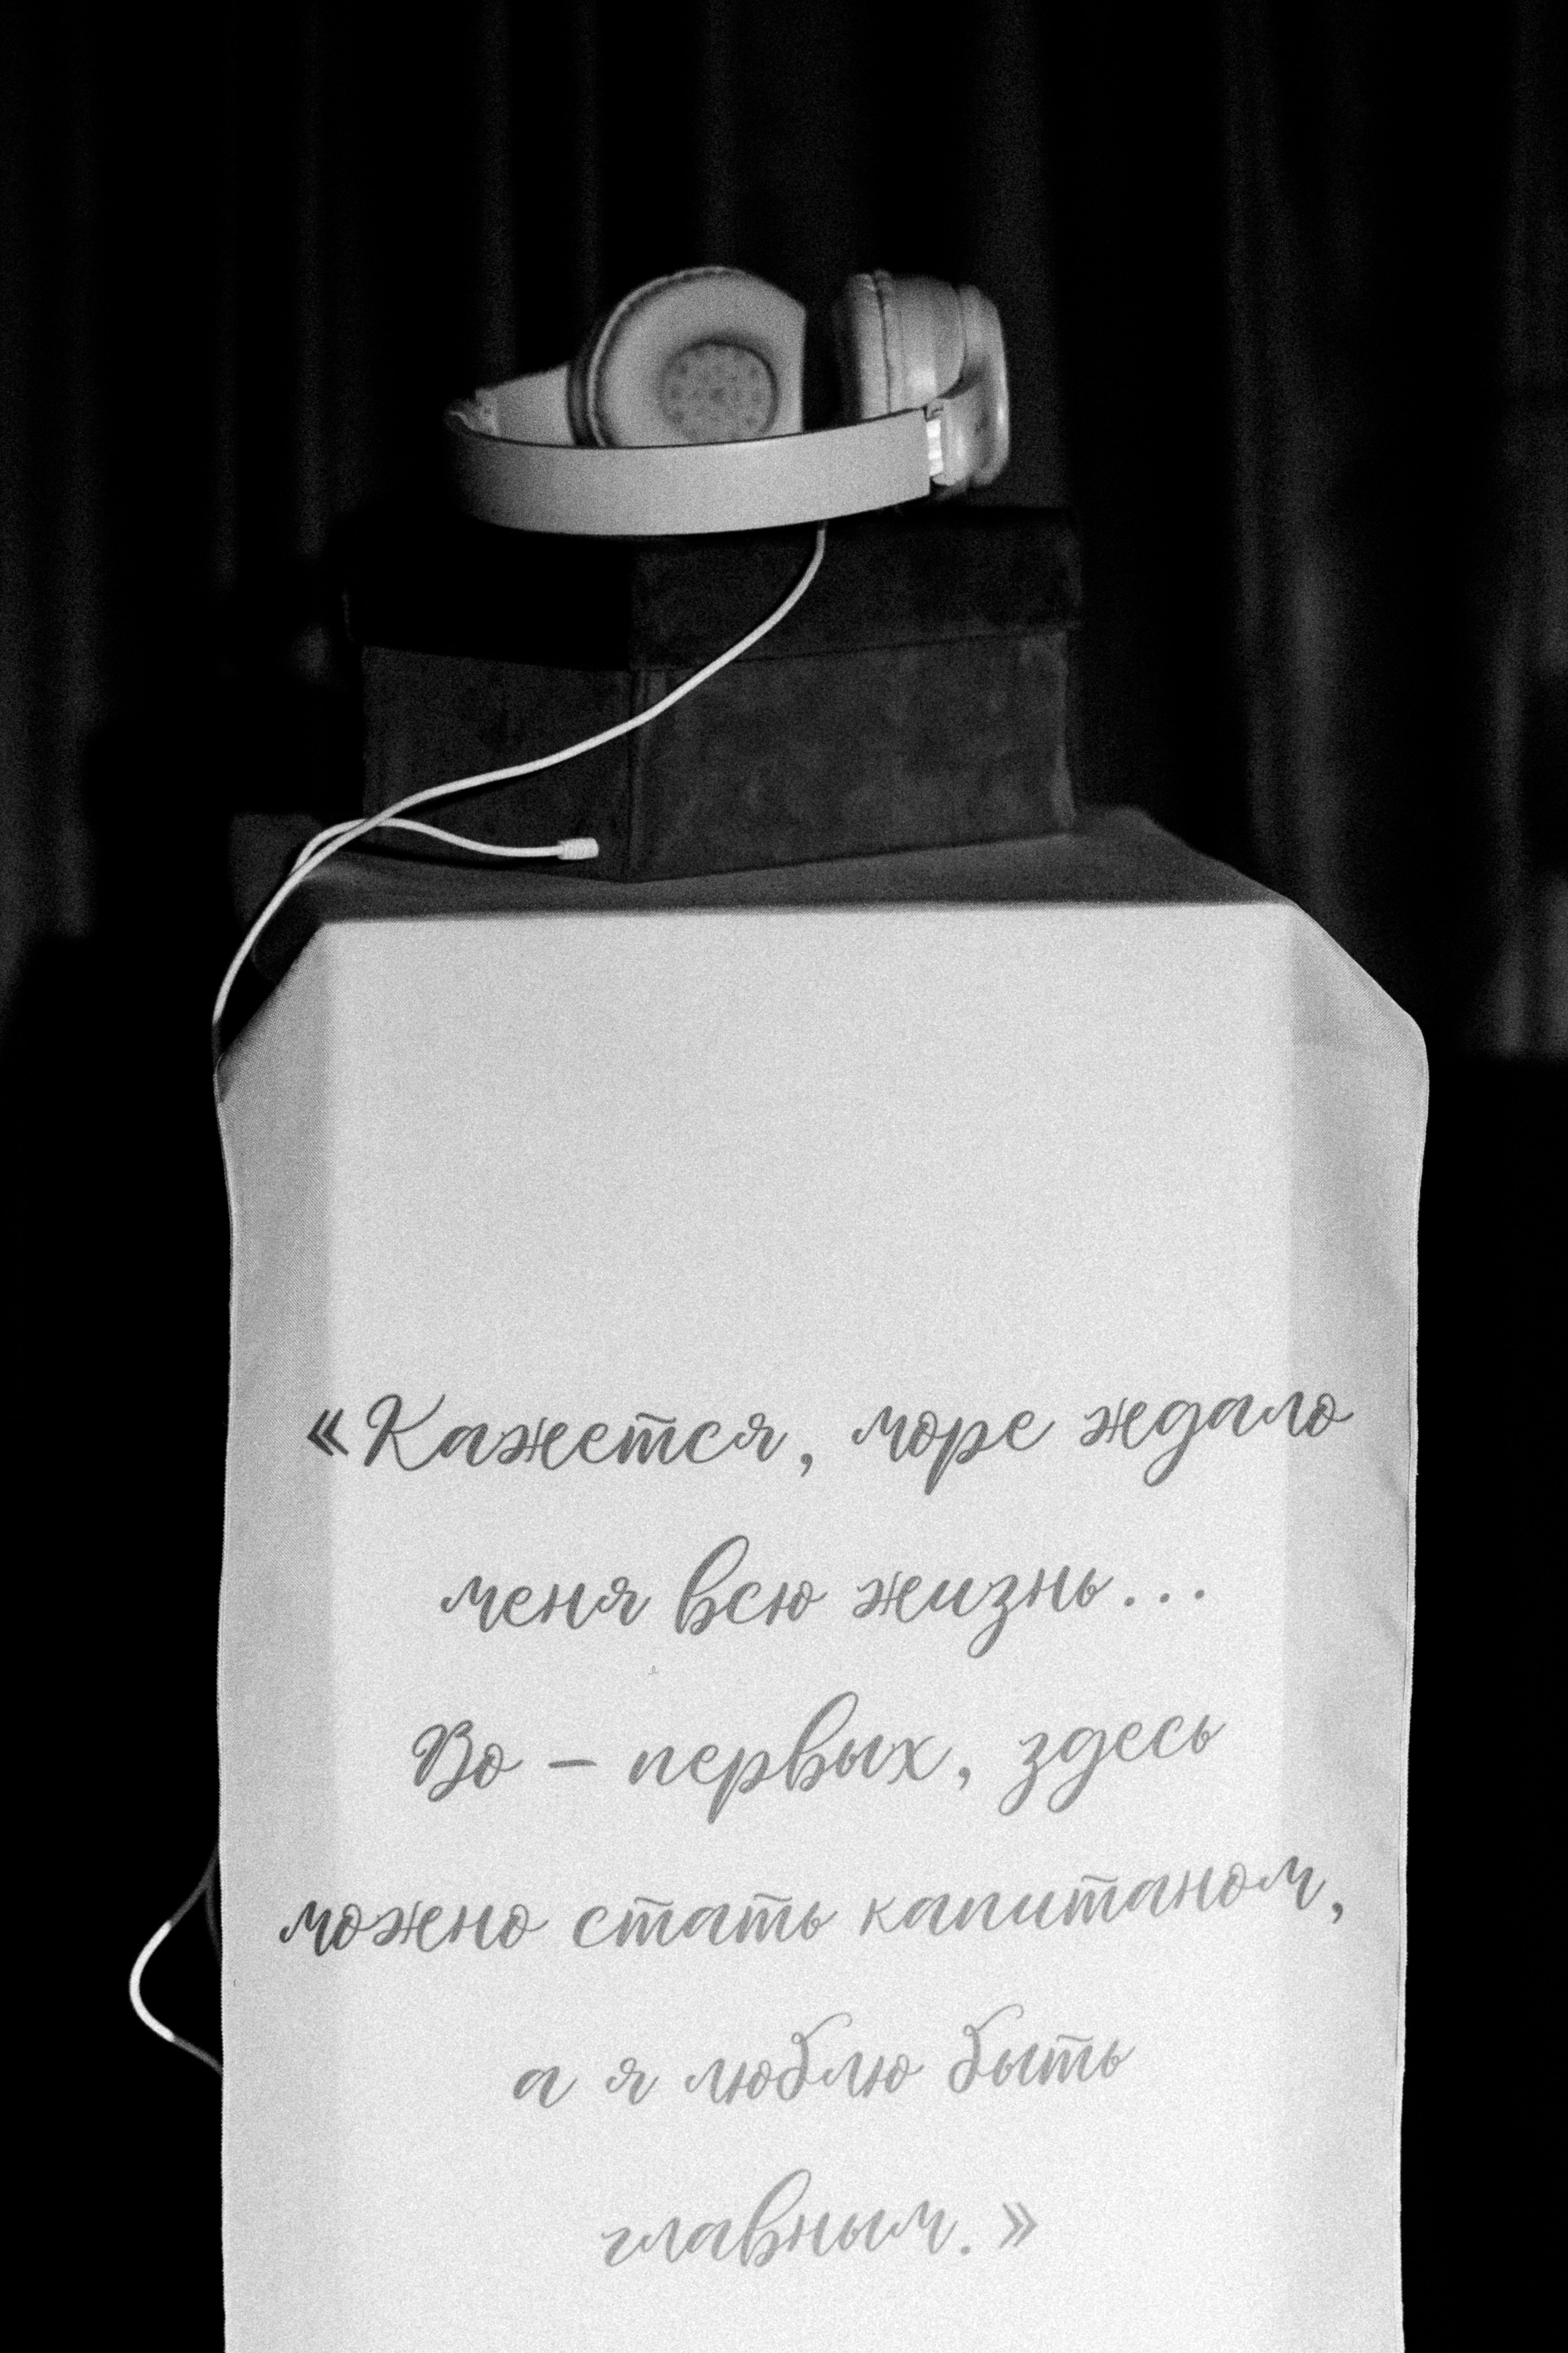 «Кажется, море ждало
меня всю жизнь...
Во - первых, здесь
можно стать капитаном,
а я люблю быть
главным.»